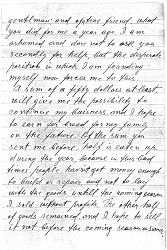 gentleman and offree friend what
you did for me a year ago. I am
ashamed and does not to ask you
secondly for help, but the desperate
position in which I am founding
myself now forces me to this.
A sum of a fifty dollars at least
will give me the possibility to
continue my business, and I hope
to earn my bread for my family
on the future. Of the sum you
sent me before, half is eaten up
during the year because in this bad
times people haven't got money enough
to build or repair and not to buy
with the goods untill the coming season
I sold without profite. The other half
of goods remained, and I hope to sell
it not before the coming season